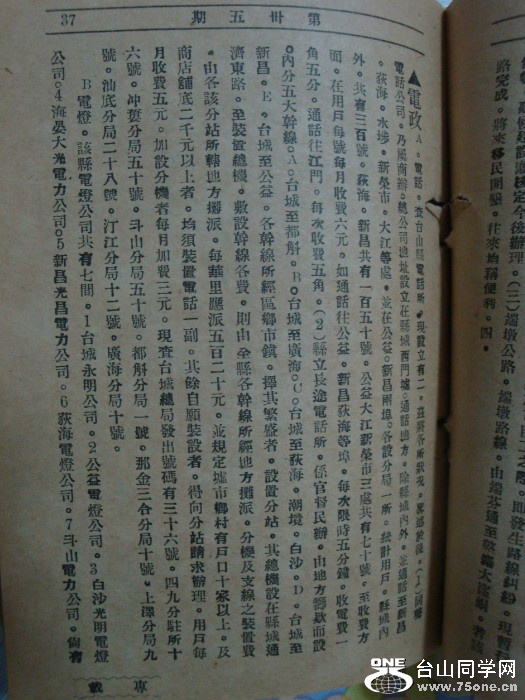 第卅五期
37
路完成，將來移民開墾，往來均稱便利。四。
▲電政 A、電話，查台山縣電話所，現設立有二，茲將各所狀況，彙述於後，(1)岡寧
電話公司，乃屬商辦，總公司地址設立在縣城西門墟，通話地方，除縣城內外，並通話至新昌
，荻海，水埗，新榮市，大江等處，並在公益，新昌兩埠，各設分局一所，統計用戶，縣城內
外，共有三百號，荻海，新昌共有一百五十號，公益大江新榮市三處共有七十號，至收費方
面，在用戶每號每月收費六元，如通話往公益，新昌荻海等埠，每次限時五分鐘，收電費一
角五分，通話往江門，每次收費五角，(2)縣立長途電話所，係官督民辦，由地方籌歀而設
。內分五大幹線。A。台城至都斛。B。台城至廣海。C。台城至荻海，潮境，白沙。D。台城至
新昌。E。台城至公益。各幹線所經區鄉市鎮，擇其繁盛者，設置分站。其總機設在縣城通
濟東路。至裝置總機，敷設幹線各費，則由全縣各幹線所經地方攤派。分機及支線之裝置費
，由各該分站所轄地方攤派，每華里懸派五百二十元，並規定墟市鄉村有戶口十家以上，及
商店舖底二千元以上者，均須裝置電話一副。其餘自願裝設者，得向分站請求辦理。用戶每
月收費五元，加設分機者每月加費三元。現查台城總局發出號碼有三十六號，四九分駐所十
六號，冲蔞分局五十號，斗山分局五十號，都斛分局一號，那金三合分局十號，上澤分局九
號，汕底分局二十八號，汀江分局十二號，廣海分局十號。
B電燈。該縣電燈公司共有七間。1台城永明公司。2公益電燈公司。3白沙光明電燈
公司。4海晏大光電力公司。5新昌光昌電力公司。6荻海電燈公司。7斗山電力公司。倘有
專載
ONE
台山同学网
www.75one.cn